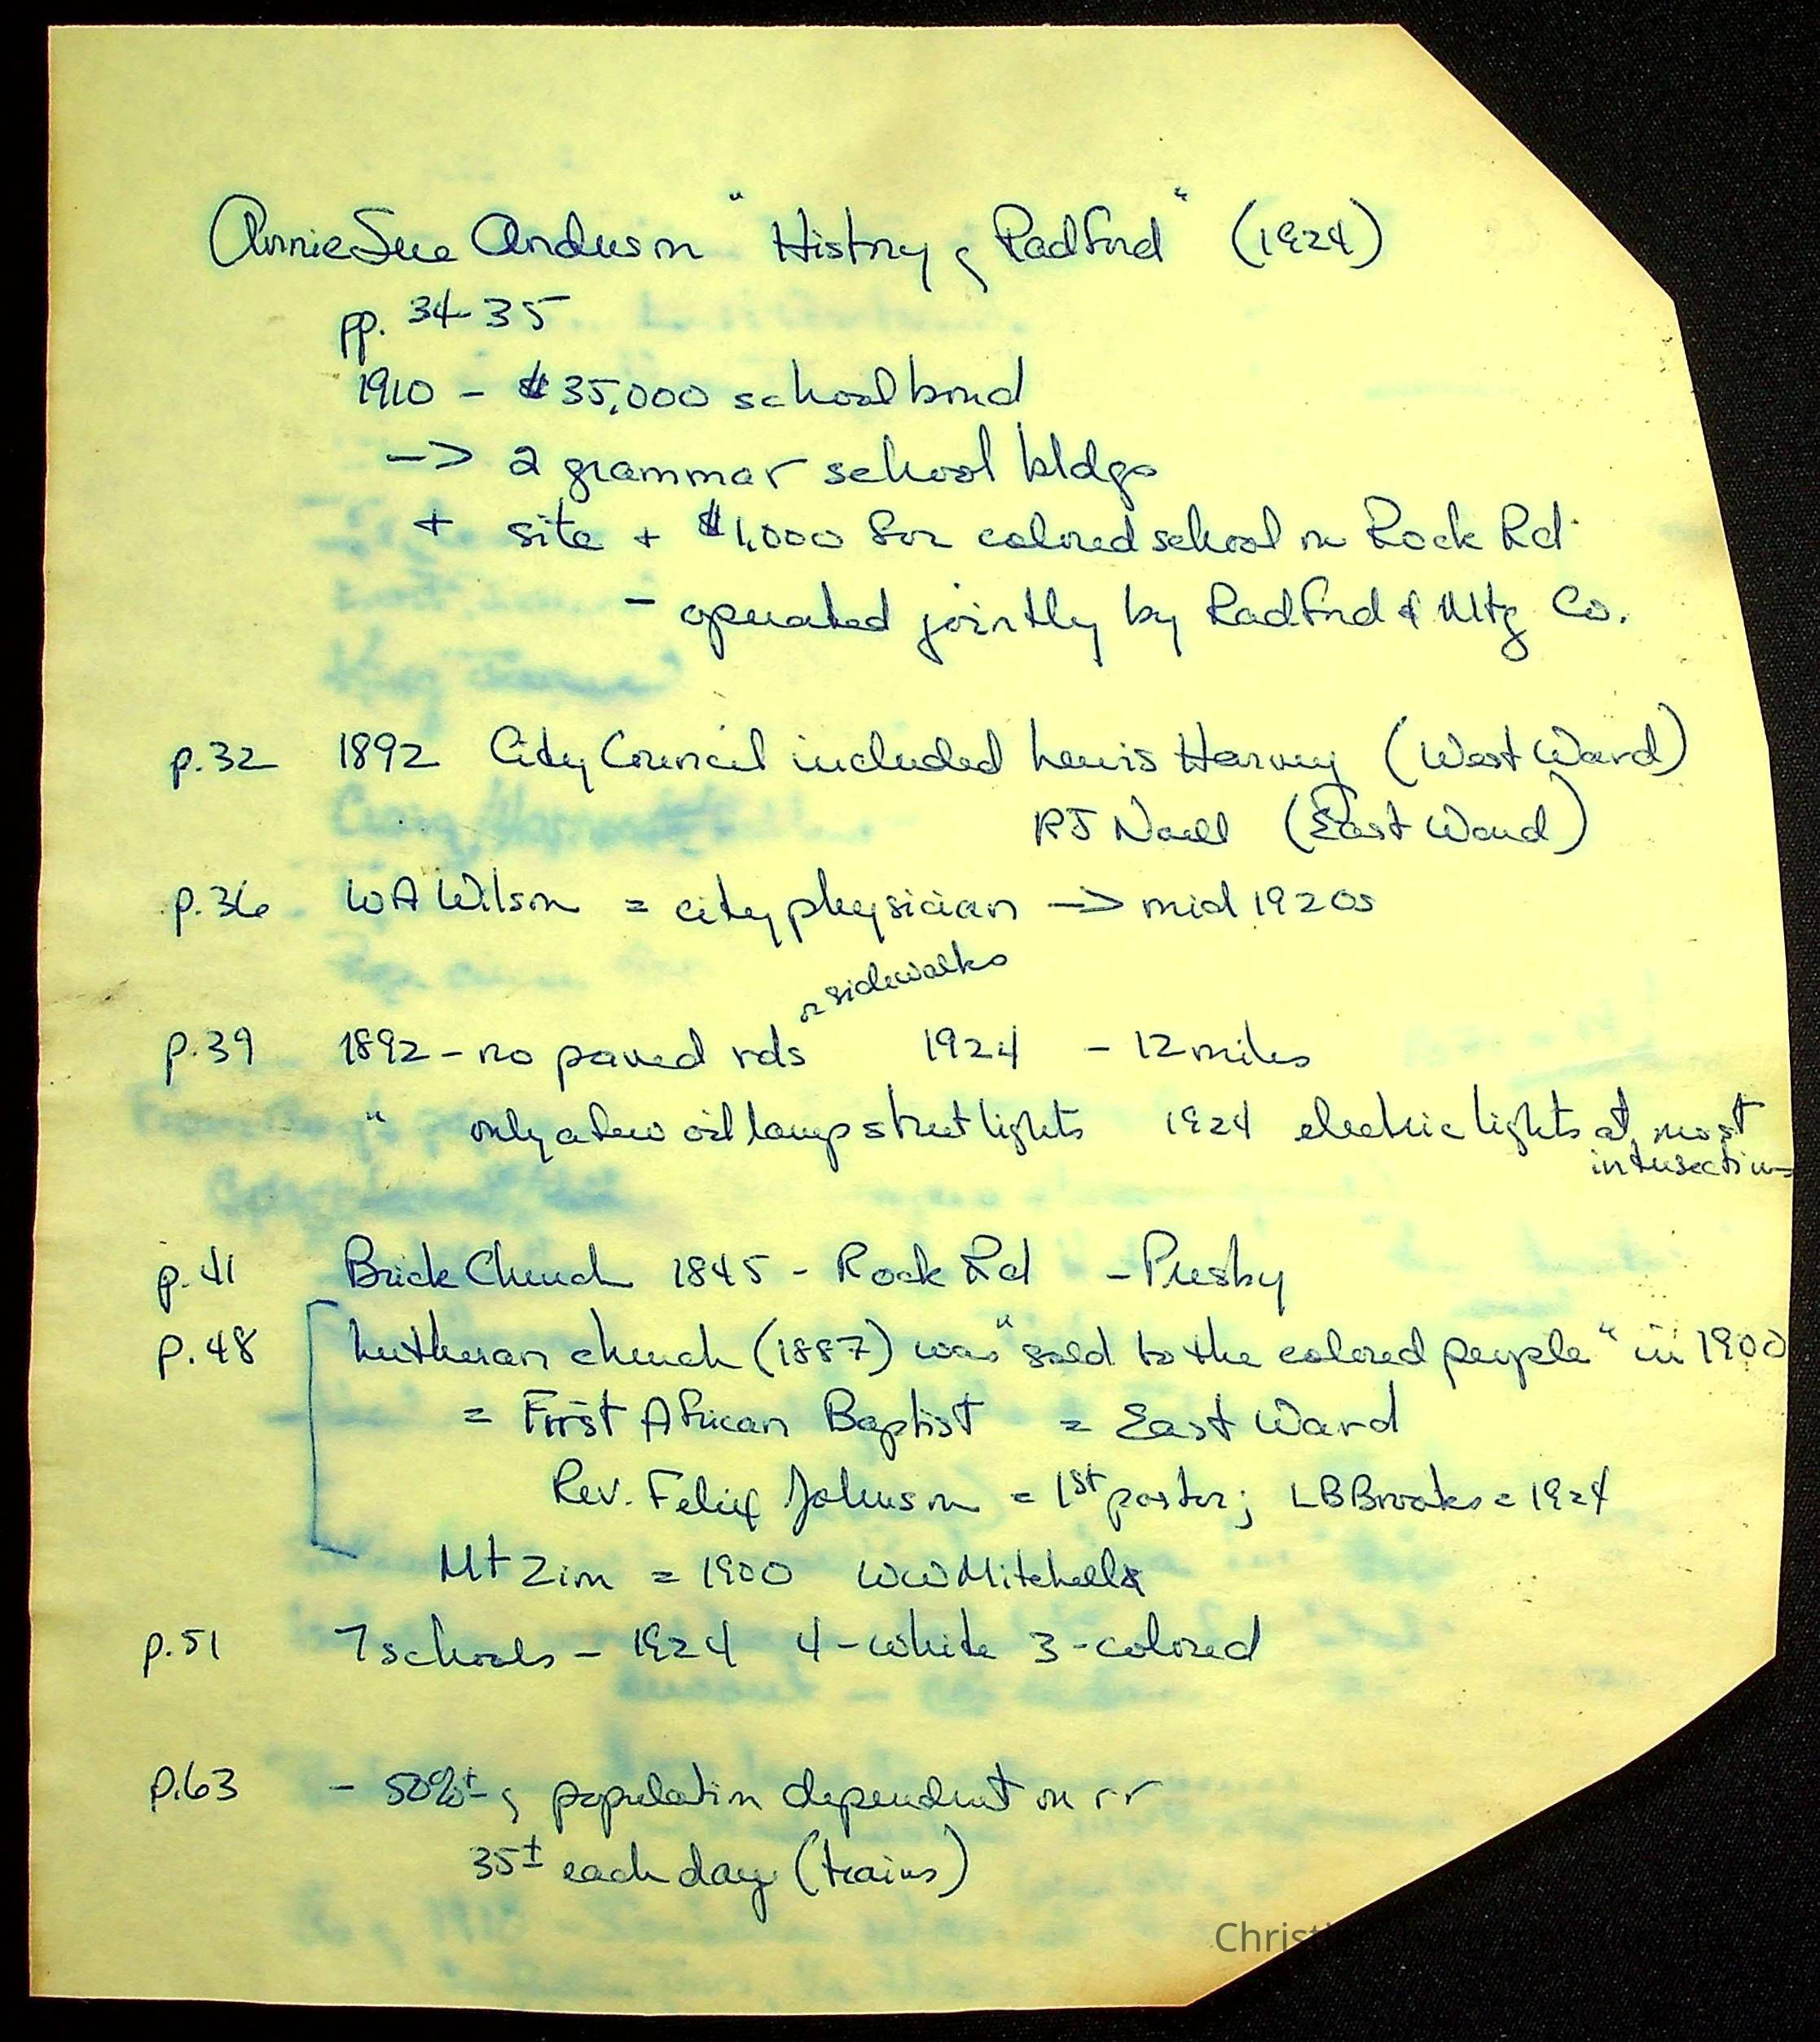 Annie Sue Anderson "History of Radford" (1924)
pp. 34-35
1910 - $35,000 school bond
-> 2 grammar school bldgs
+ site + $1,000 for colored school on Rock Rd
- operated jointly by Radford & Mtg Co.
p.32 1892 City Council included Lewis Harvey (West Ward)
RJ Noell (East Ward)
p.36 WA Wilson = city physician -> mid 1920s
or sidewalks
p.39 1892 - no paved rds 1924 - 12 miles
" only a few oil lamp street lights 1924 electric lights at most
intersections
p.41 Brick Church 1845 - Rock Rd - Presby
p.48 Lutheran church (1887) was "sold to the colored people" in 1900
= First African Baptist = East Ward
Rev. Felix Johnson = 1st pastor; LB Brooks = 1924
Mt Zion = 1900 WW Mitchell
p.51 7 schools - 1924 4-white 3-colored
p.63 - 50%± of population dependent on rr
35± each day (trains)